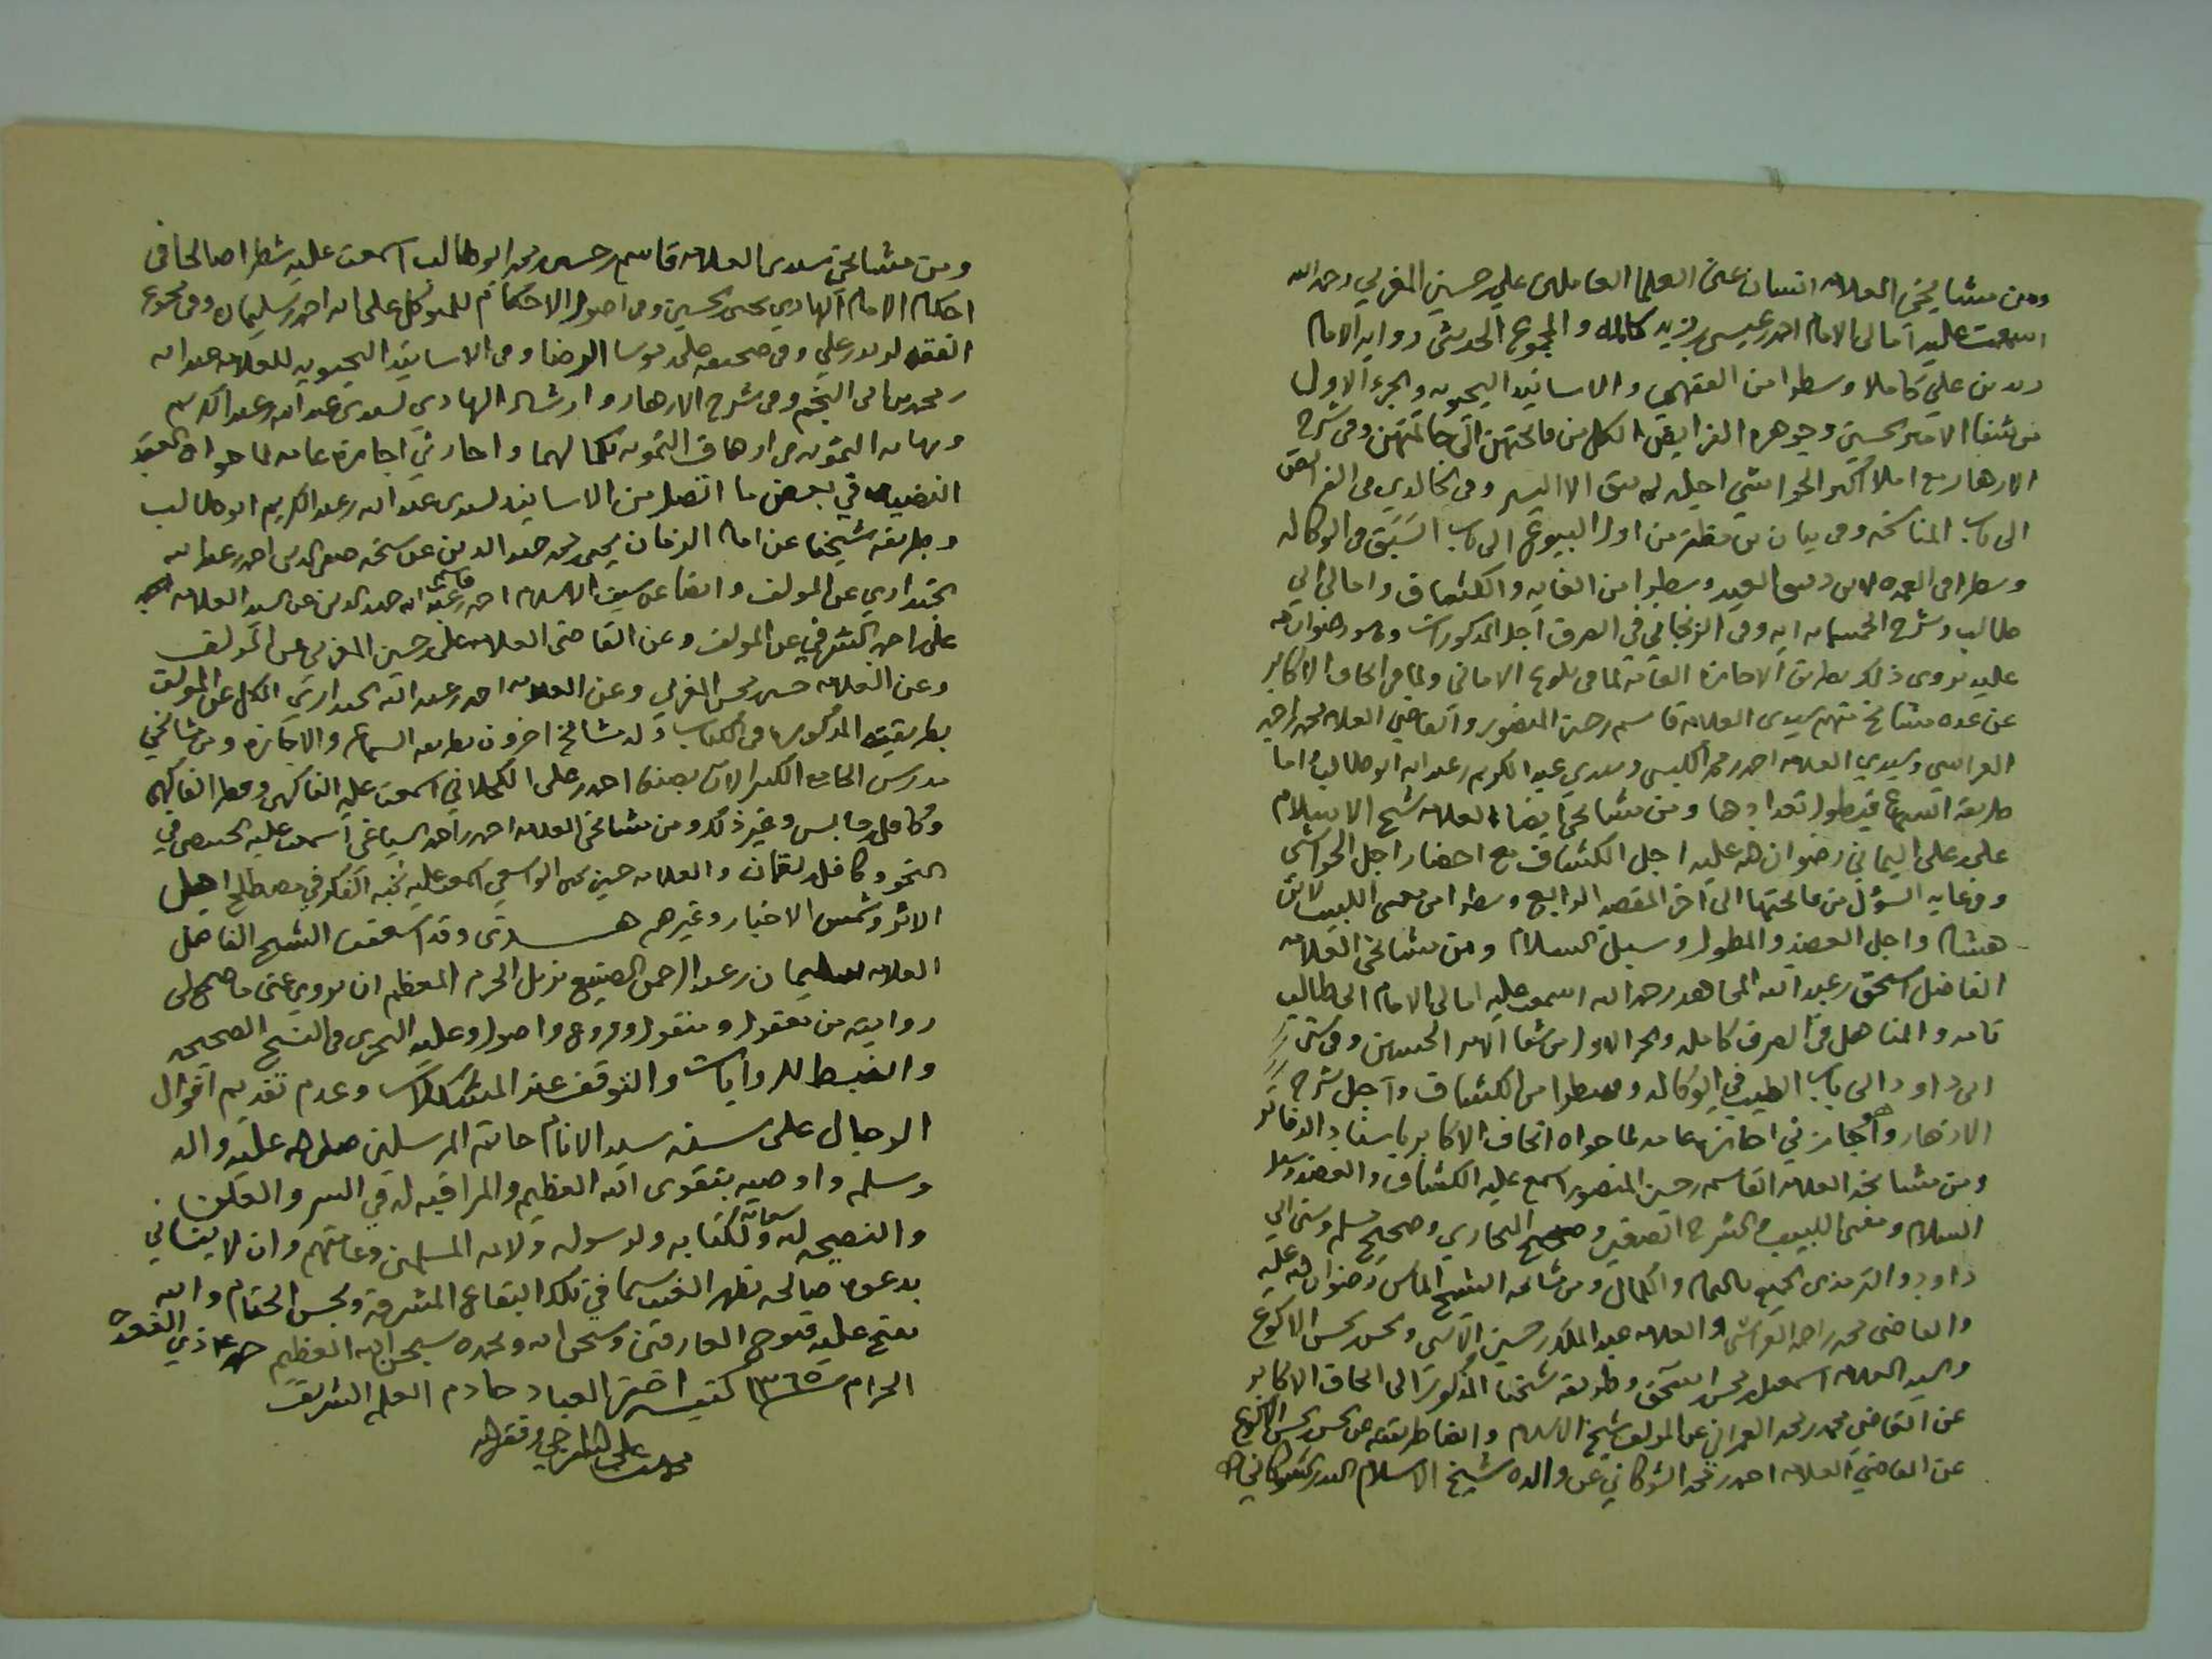 ومن مشايخي العلامه انسان عين العلما العاملين علي بن حسين المغربي رحمه الله
اسمعت عليه امالي الامام احمد بن عيسى بن زيد كامله والمجموع الحديثي روايه الامام
زيد بن علي كاملا وسطرا من الفقهي والاسانيد اليحيويه والجزء الاول
من شفا الامير الحسين وجوهره الفرايض الكل من فاتحتهن الى خاتمتهن وفي شرح
الازهار مع املا اكثر الحواشي اجله لم يبق الا اليسير وفي الخالدي في الفرائض
الى باب المناسخه وفي بيان بن مظفر من اول البيوع الى باب السبق في الوكاله
وسطرا في العمده لابن دقيق العيد وسطرا من الغايه والكشاف وامالي ابي
طالب وشرح الخمسمايه ايه وفي الزنجاني في الصرف اجل المذكورات وهو رضوان الله
عليه يروى ذلك بطريق الاجازه العامه لما في بلوغ الاماني ولما في اتحاف الاكابر
عن عده مشايخ منهم سيدي العلامه قاسم بن حسين المنصور والقاضي العلامه محمد بن احمد
العراسي وسيدي العلامه احمد بن محمد الكبسي وسيدي عبد الكريم بن عبد الله ابو طالب واما
طريقه السماع فيطول تعدادها ومن مشايخي ايضا العلامه شيخ الاسلام
علي بن علي اليماني رضوان الله عليه اجل الكشاف مع احضار اجل الحواشي
وفي غايه السؤل من فاتحتها الى آخر المقصد الرابع وسطرا من مغني اللبيب لابن
هشام واجل العضد والمطول وسبل السلام ومن مشايخي العلامه
الفاضل اسحق بن عبد الله المجاهد رحمه الله اسمعت عليه امالي الامام ابي طالب
تامه والمناهل في الصرف كامله والجز الاول من شفا الامير الحسين وفي سنن
ابي داود الى باب الطيب في الوكاله وسطرا من الكشاف واجل شرح
الازهار وهو اجازني اجازة عامه لما حواه اتحاف الاكابر باسناد الدفاتر
ومن مشايخه العلامه القاسم بن حسين المنصور اسمع عليه الكشاف والعضد وسبل
السلام ومغني اللبيب والشرح الصغير وصحيح البخاري وصحيح مسلم وسنن ابي
داود والترمذي الجميع بالتمام والكمال ومن مشايخه الشيخ الماس رضوان الله عليه
والقاضي محمد بن احمد العراسي والعلامه عبد الملك بن حسين الآنسي ومحسن بن محسن الاكوع
والسيد العلامه اسمعيل بن محسن اسحق وطريقه شيخنا المذكور الى اتحاف الاكابر
عن القاضي محمد بن محمد العمراني عن المولف شيخ الاسلام وايضا طريقه عن محسن بن محسن الاكوع
عن القاضي العلامه احمد بن محمد الشوكاني عن والده شيخ الاسلام البدر الشوكاني
ومن مشايخي سيدي العلامه قاسم بن حسين بن محمد ابو طالب اسمعت عليه شطرا صالحا في
احكام الامام الهادي يحيى بن الحسين وفي اصول الاحكام للمتوكل على الله احمد بن سليمان وفي مجموع
الفقه لزيد بن علي وفي صحيفه علي بن موسا الرضا وفي الاسانيد اليحيويه للعلامه عبد الله
بن محمد بن ابي النجم وفي شرح الازهار وارشاد الهادي لسيدي عبد الله بن عبد الكريم
ونهايه التنويه في ازهاق التمويه بكمالهما واجازني اجازة عامه لما حواه العقد
النضيد في بعض ما اتصل من الاسانيد لسيدي عبد الله بن عبد الكريم ابو طالب
وطريقه شيخنا عن امام الزمان يحيى بن محمد حميد الدين عن شيخه صفي الدين احمد بن عبد الله
الجنداري عن المولف وايضا عن سيف الاسلام احمد بن قاسم بن عبد الله حميد الدين عن السيد العلامه
علي بن احمد الشرفي عن المولف وعن القاضي العلامه علي بن حسين المغربي عن المولف
وعن العلامه حسين بن محسن المغربي وعن العلامه احمد بن عبد الله الجنداري الكل عن المولف
بطريقيه المذكورتين في الكتاب وله مشايخ اخرون بطريقه السماع والاجازه ومن مشايخي
مدرس الجامع الكبير الان بصنعا احمد بن علي الكحلاني اسمعت عليه الفاكهي وقطر الفاكهي
وكافل وخابس وغير ذلك ومن مشايخي العلامه احمد بن احمد السياغي اسمعت عليه الخبيصي في
النحو وكافل لقمان والعلامه حسين بن محمد الواسعي اسمعت عليه نخبة الفكر في مصطلح اهل
الاثر وشمس الاخبار وغيرهم هذا وقد اسعفت الشيخ الفاضل
العلامه سليمان بن عبد الرحمن الصنيع نزيل الحرم المعظم ان يروي عني ما صح لي
روايته من معقول ومنقول وفروع واصول وعليه التحري في النسخ الصحيحه
والضبط للروايات والتوقف عند المشكلات وعدم تقديم اقوال
الرجال على سنة سيد الانام خاتم المرسلين صلى الله عليه واله
وسلم واوصيه بتقوى الله العظيم والمراقبه له في السر والعلن
والنصيحه لله سبحانه ولكتابه ولرسوله ولائمة المسلمين وعامتهم وان لا ينساني
بدعوه صالحه بظهر الغيب سيما في تلك البقاع المشرفة وبحسن الختام والله
يفتح عليه فتوح العارفين وسبحان الله وبحمده سبحان الله العظيم حرر ذي القعده
الحرام سنه ١٣٦٥ كتبه احقر العباد خادم العلم الشريف
علي وفقه الله